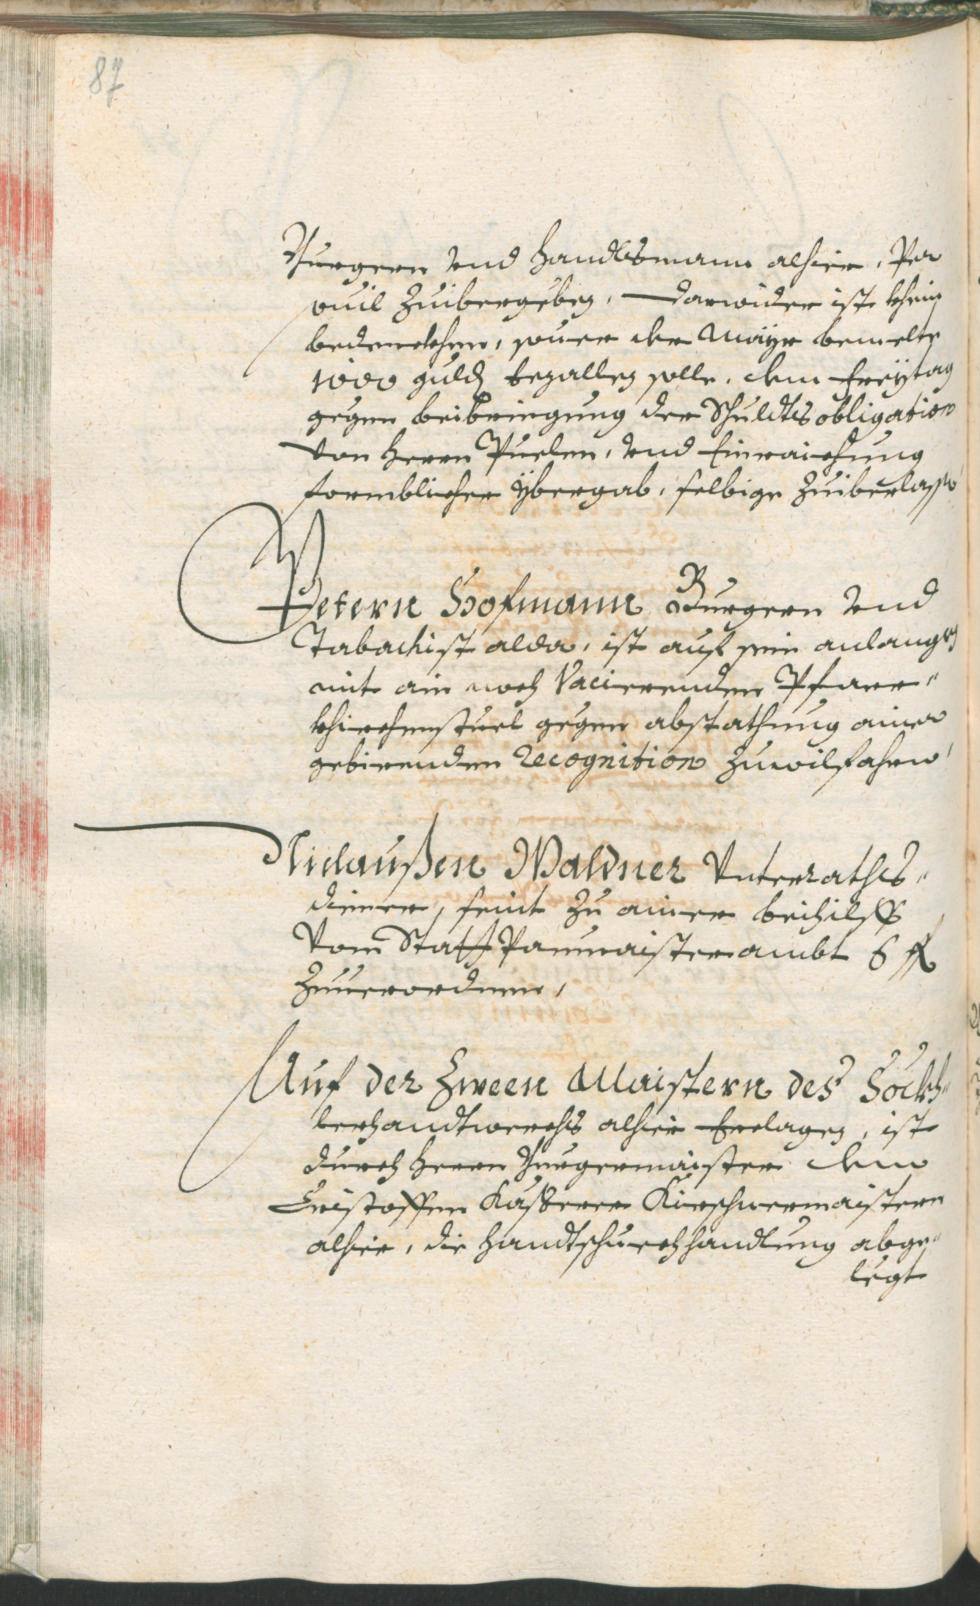 87
Burgern vnd Handlsmann alhier, Per
vuil Zuibergeben, darwider ist khein
bedenckhen, souer der Mayr bemelte
1000 guld bezallen solle, dem Freytag
gegen beibringung der Schuldtsobligation
von Herrn Puelen, vnd Einraichung
formblicher ybergab, selbige Zuiberlassen
Petern Hofmann Burgern vnd
Tabachist alda, ist auf sein anlangen
mit ain noch Vacierenden Pfarr-
khirchenstuel gegen abstathung ainer
gebirenden Recognition Zuwilfahren
Niclaußen Waldner Vnterraths-
diener, seint zu ainer beihilff
vom StattPaumaisterambt 6 fl
Zuuerordnen,
Auf der Zween Maistern des Söckh-
lerhandtwerchs alhier Erclagen, ist
durch Herrn Burgermaister dem
Cristoffen Kasserer Kirschnermaistern
alhier, die Handtschuechhandlung abge-
legt